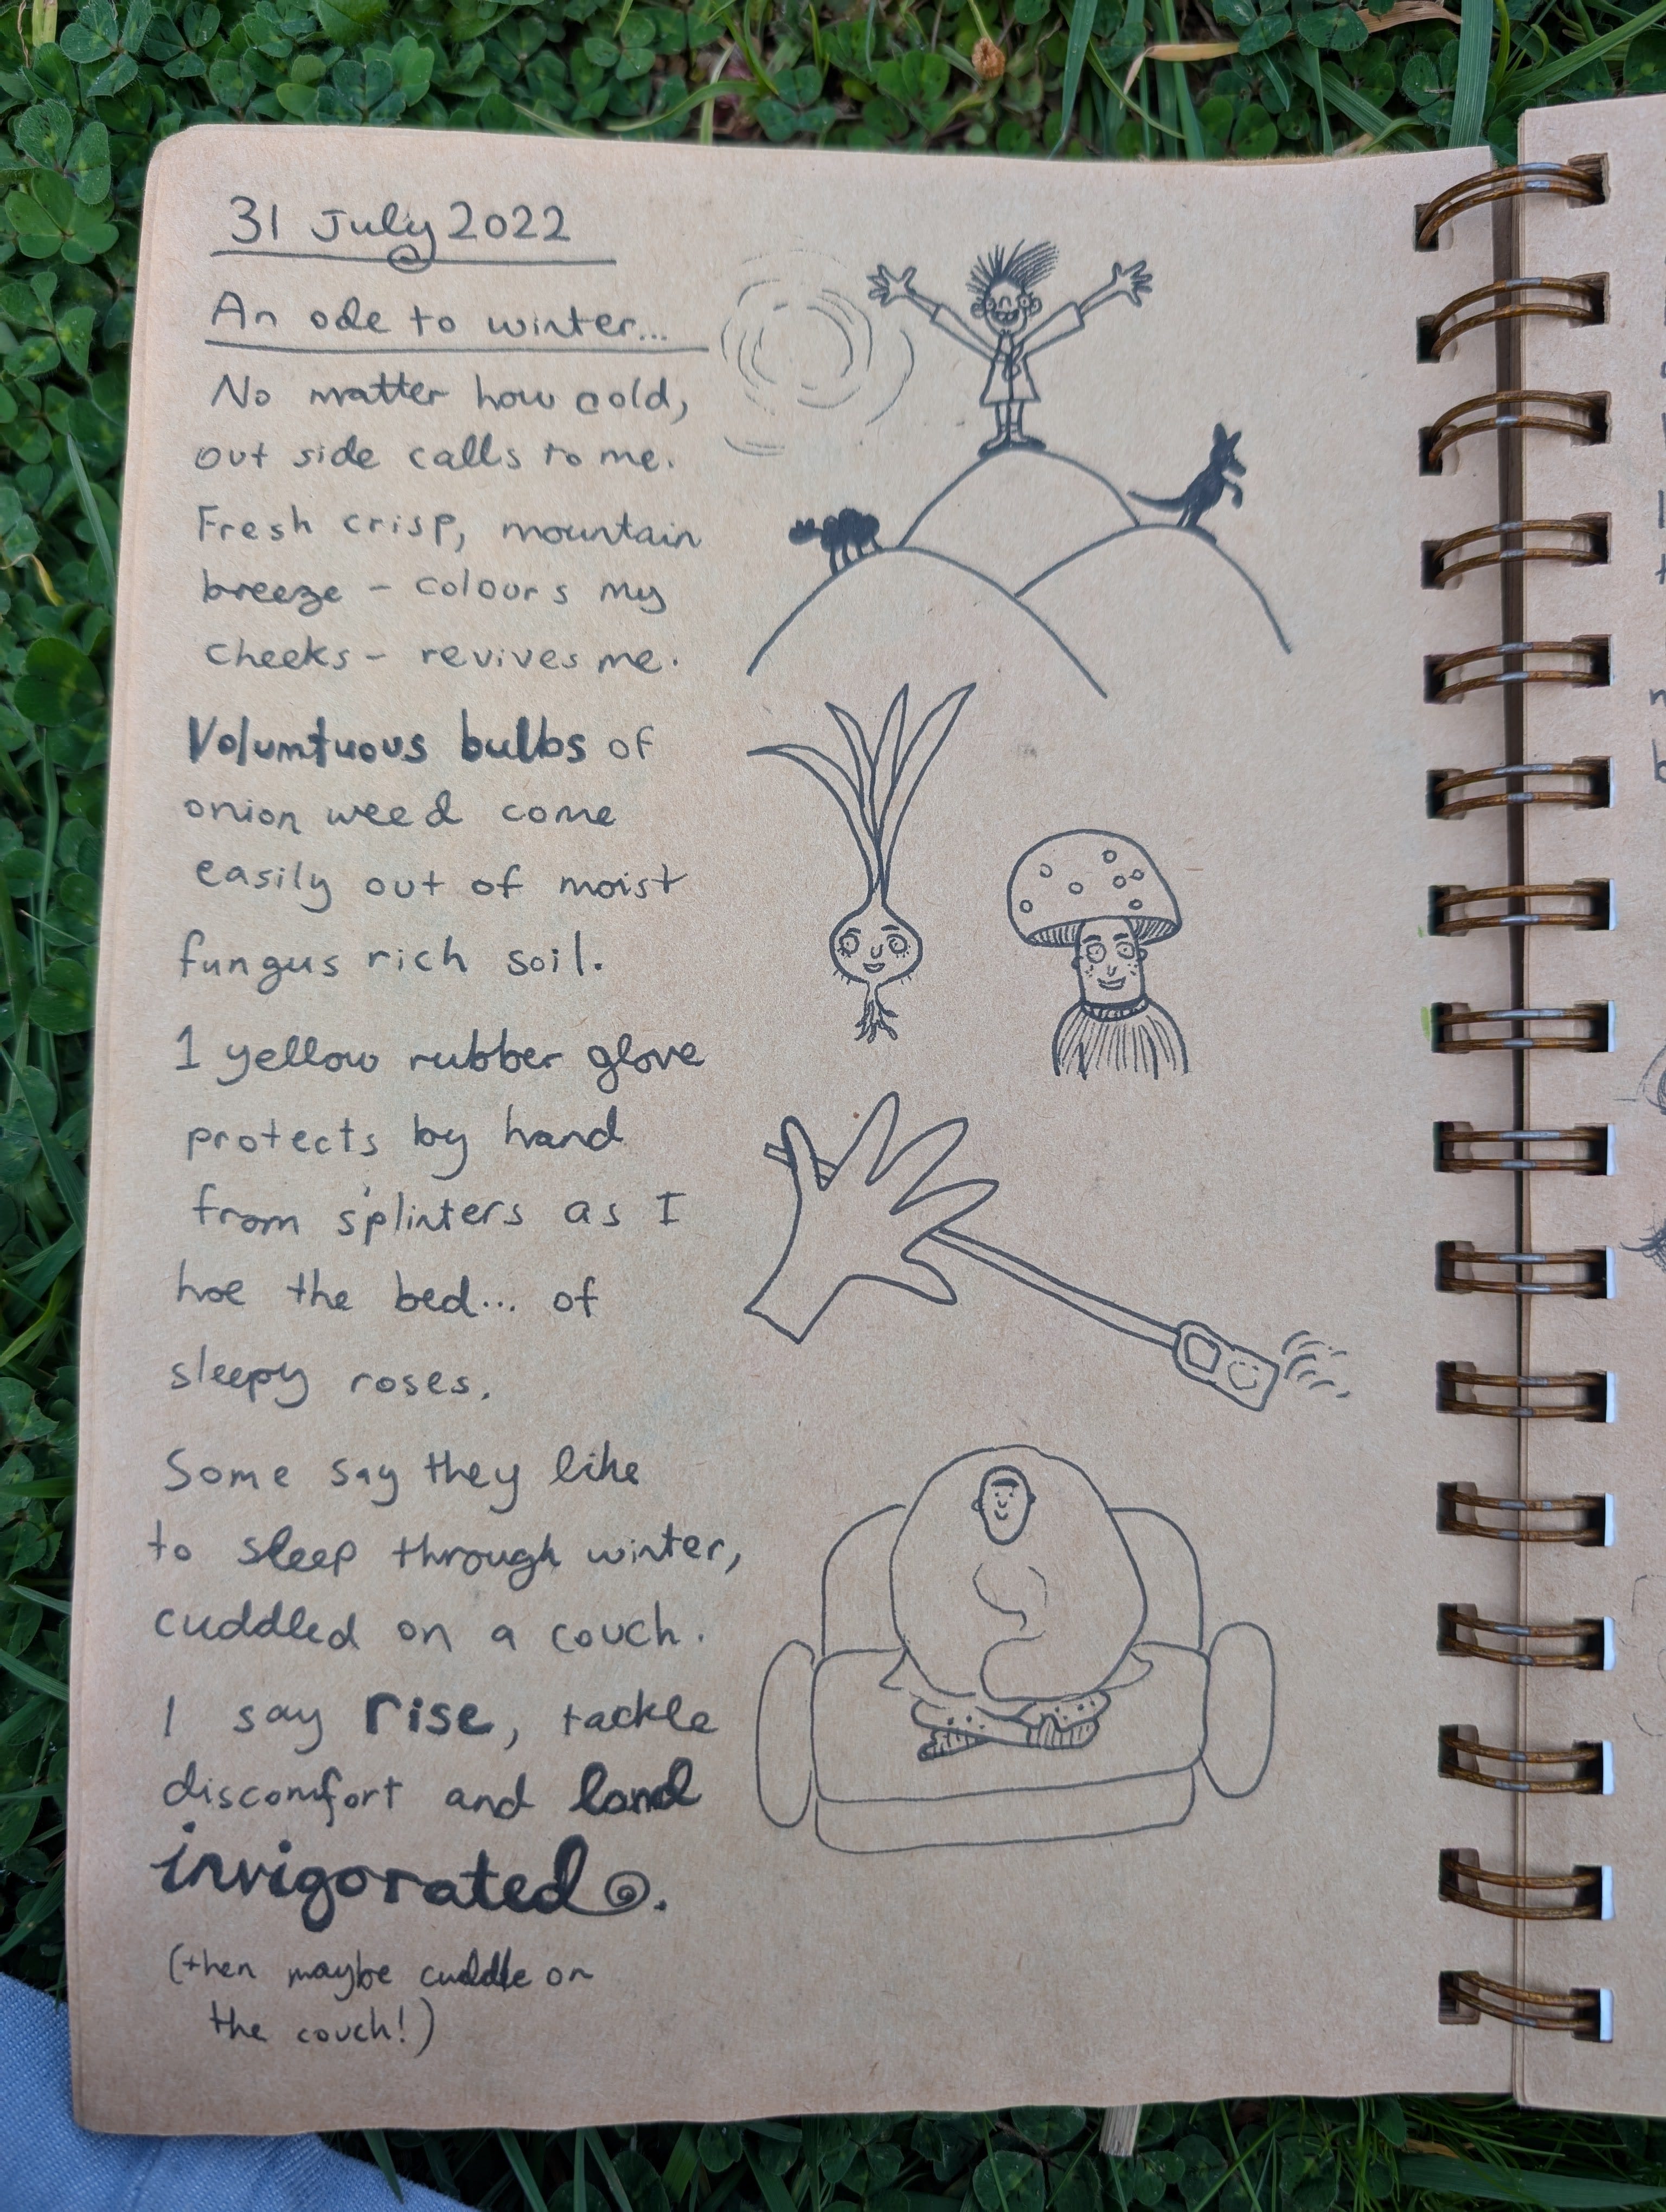 31 July 2022
An ode to winter...
No matter how cold,
out side calls to me.
Fresh crisp, mountain
breeze - colours my
cheeks - revives me.
Volumtuous bulbs of
onion weed come
easily out of moist
fungus rich soil.
1 yellow rubber glove
protects by hand
from splinters as I
hoe the bed... of
sleepy roses.
Some say they like
to sleep through winter,
cuddled on a couch.
I say rise, tackle
discomfort and land
invigorated.
(then maybe cuddle on
the couch!)